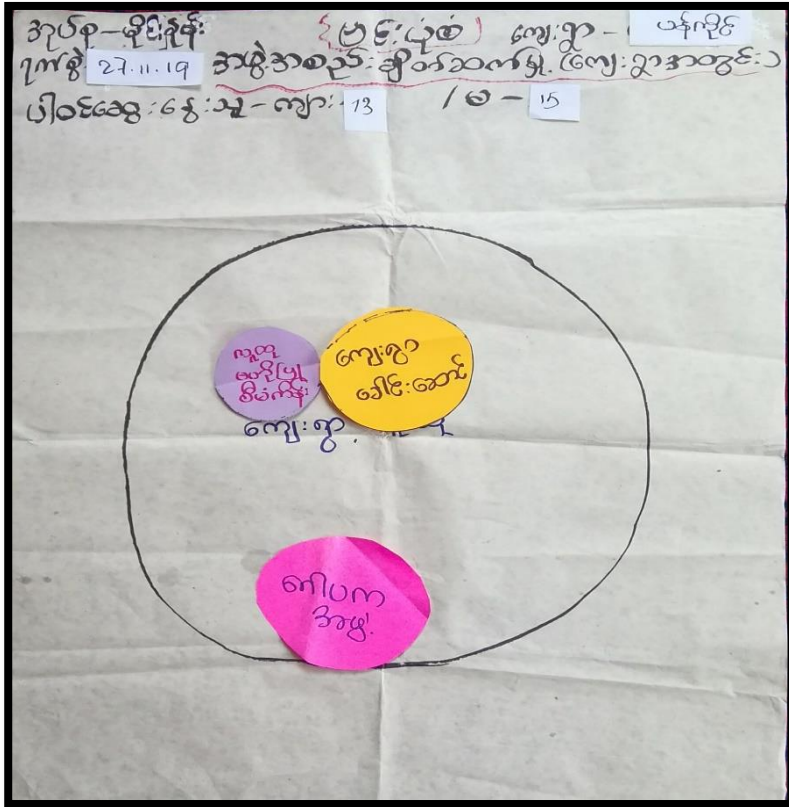 အုပ်စု-မိုင်းနွန်း (ဗင်းပုံစံ) ကျေးရွာ - ပန်ကိုင်
ရက်စွဲ 27.11.19 အဖွဲ့အစည်းချိတ်ဆက်မှု (ကျေးရွာအတွင်း)
ပါဝင်ဆွေးနွေးသူ - ကျား- 13 / မ - 15
လူထု
ဗဟိုပြု
စီမံကိန်း
ကျေးရွာ
ခေါင်းဆောင်
ကျေးရွာ
အဖွဲ့